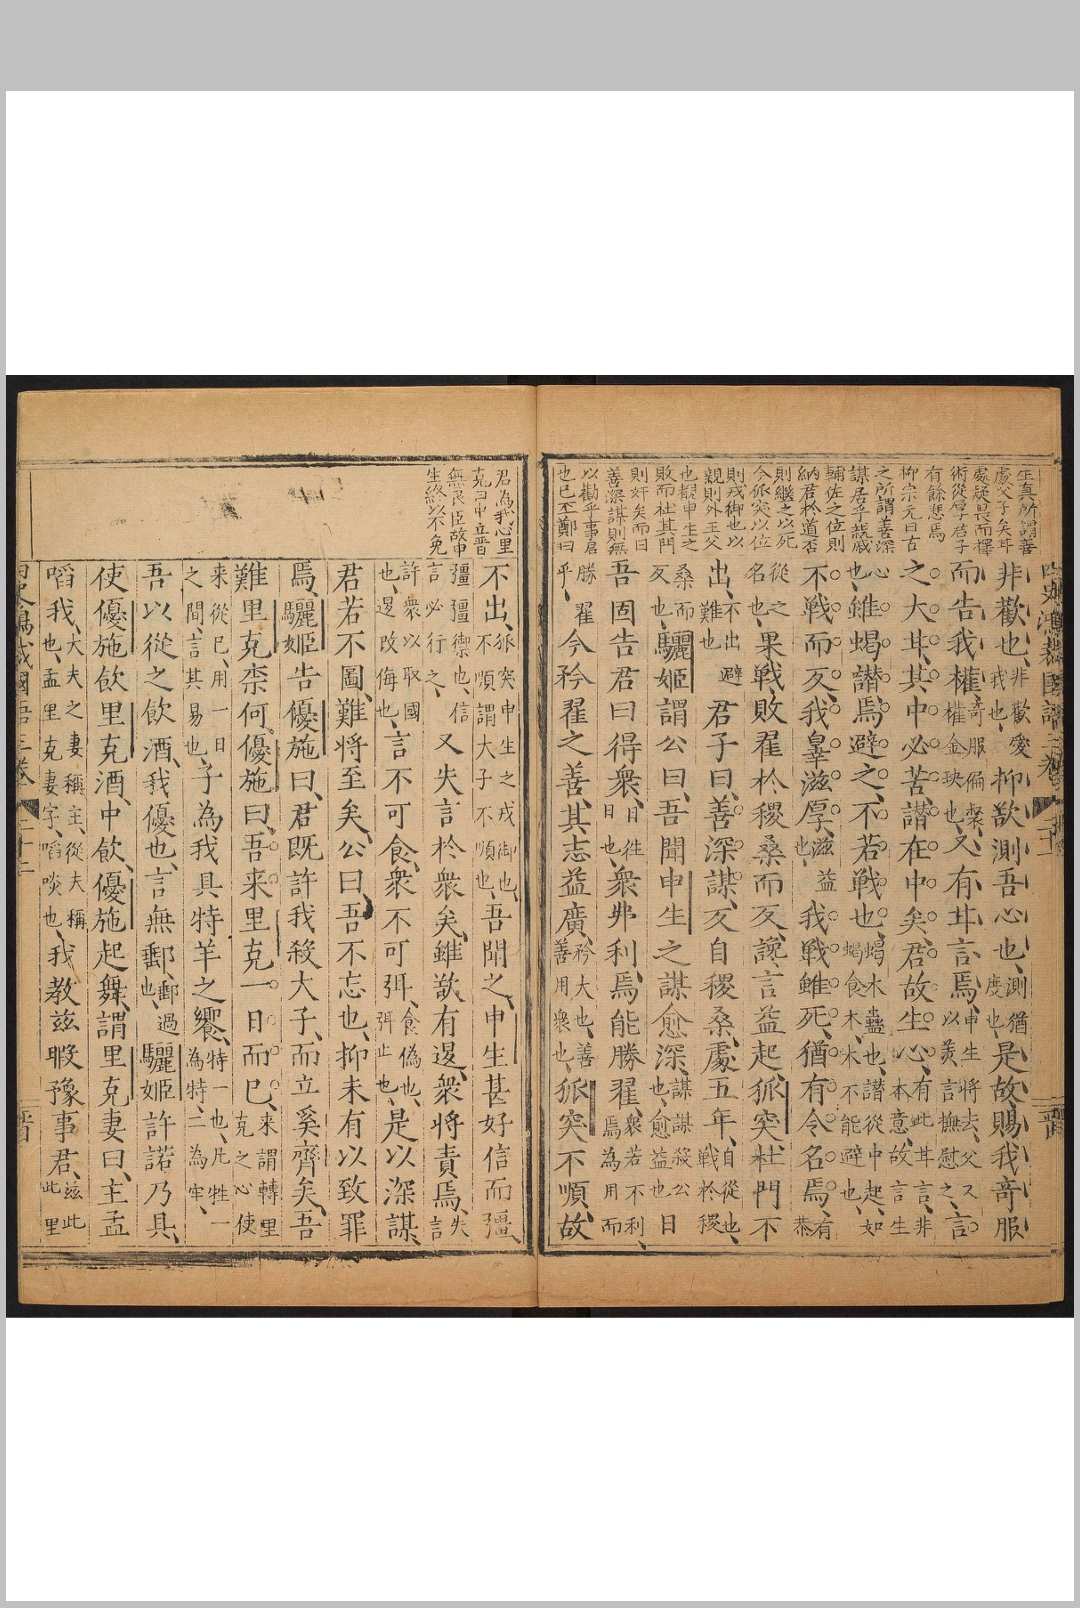 生真所謂善
處父子矣耳
處疑畏而擇
術從厚君子
有餘悲焉
柳宗元曰古
之所謂善深
謀居乎親戚
輔佐之位則
納君於道否
則繼之以死
今狐突以位
則戎御也以
親則外王父
也覩申生之
敗而杜其門
則奸矣而曰
善深謀則無
以勸乎事君
也已丕鄭曰
非歡也、非歡愛我也、抑欲測吾心也、測猶度也是故賜我奇服
而告我權、奇服偏裻、權金玦也、又有甘言焉、申生將去、父又以美言撫慰之、言
之大甘、其中必苦、譖在中矣、君故生心、有此甘言、非本意、故言生
心也雖蝎譖焉避之、不若戰也、蝎木蠹也、譖從中起、如蝎食木、木不能避也、
不戰而反、我辠滋厚、滋益也、我戰雖死、猶有令名焉、有恭
從之名也、果戰、敗翟於稷桑而反、讒言益起、狐突杜門不
出、不出避難也君子曰、善深謀、反自稷桑、處五年、自從也、戰於稷
桑而反也、驪姬謂公曰、吾聞申生之謀愈深、謀謀殺公也、愈益也日
吾固告君曰得衆、日往日也、衆弗利、焉能勝翟、衆若不利、焉為用而
勝翟乎、今矜翟之善、其志益廣、矜大也、善善用衆也、狐突不順、故
不出、狐突申生之戎御也、不順謂大子不順也、吾聞之、申生甚好信而彊、
彊彊禦也、信言必行之、又失言於衆矣、雖欲有退、衆將責焉、失言
許衆以取國也、退改悔也、言不可食、衆不可弭、食偽也、弭止也、是以深謀、
君若不圖、難將至矣、公曰、吾不忘也、抑未有以致罪
焉、驪姬告優施曰、君既許我殺大子、而立奚齊矣、吾
難里克柰何、優施曰、吾來里克一日而已、來謂轉里克之心、使
來從己、用一日之間、言其易也、子為我具特羊之饗、特一也、凡牲一為特、二為牢、
吾以從之飲酒、我優也、言無郵、郵過也、驪姬許諾乃具、
使優施飲里克酒、中飲、優施起舞、謂里克妻曰、主孟
啗我、大夫之妻稱主、從夫稱也、孟里克妻字、啗啖也、我教茲暇豫事君、茲此此里
君為我心里
克曰中立晋
無良臣故申
生終以不免